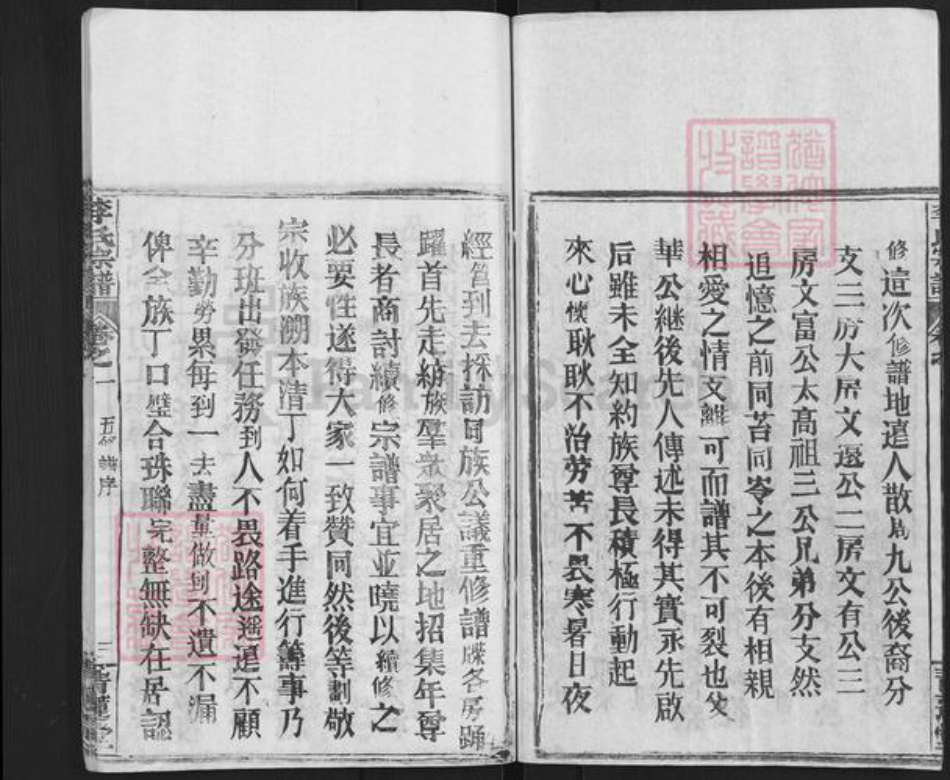 修這次修譜地遠人散萬九公後裔分
支三房大房文選公二房文有公三
房文富公太高祖三公兄弟分支然
追憶之前同苔同岑之本後有相親
相愛之情文雖可而譜其不可裂也父
華公繼後先人傳述未得其實永先啟
后雖未全知約族尊長積極行動起
來心懷耿耿不治劳苦不畏寒暑日夜
經筥到去採訪同族公議重修譜牒各房踊
躍首先走緔族羣衆聚居之地招集年尊
長者商討續修宗譜事宜並曉以續修之
必要性遂得大家一致贊同然後等劃敬
宗收族溯本清丁如何着手進行籌事乃
分班出發任務到人不畏路途遥遠不顧
辛勤勞累每到一去盡量做到不遺不漏
俾全族丁口璧合珠聯完整無缺在居認
李氏宗譜
卷之一
五修譜序
三
青蓮堂
FamilySearch